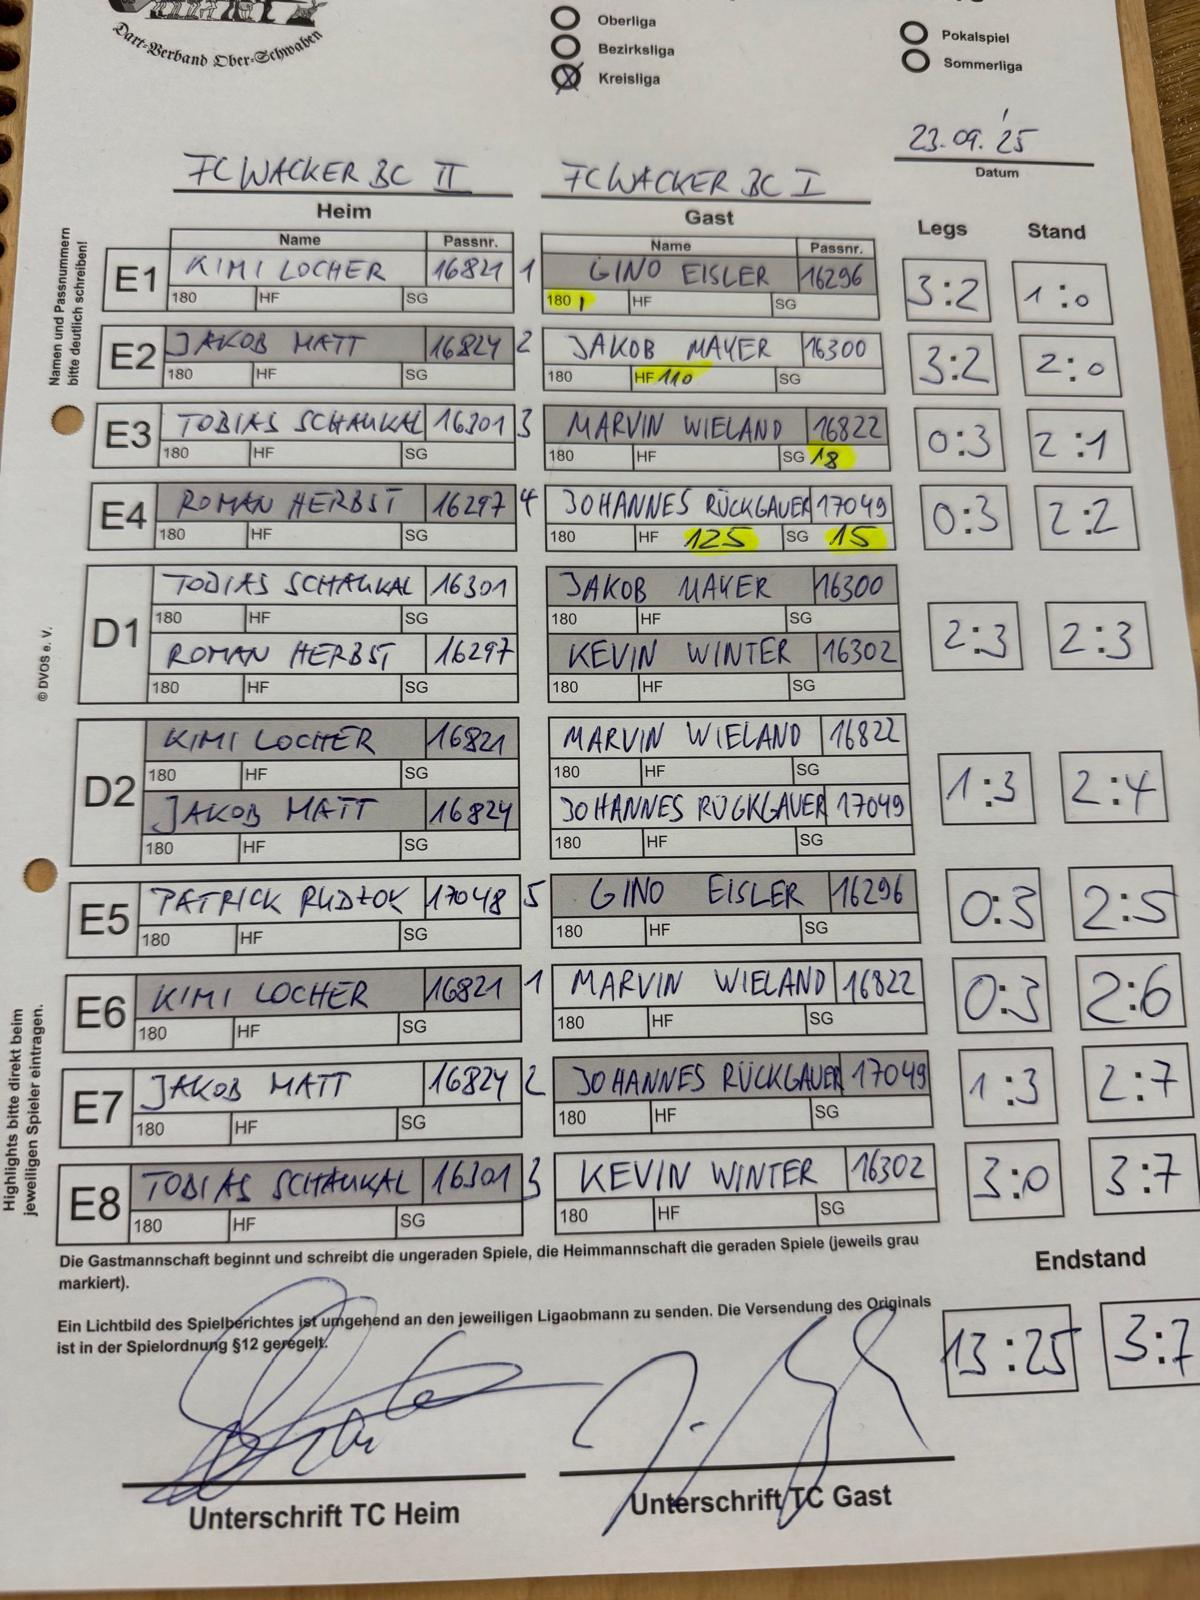 Dart-Verband Ober-Schwaben
Oberliga
Bezirksliga
Kreisliga
Pokalspiel
Sommerliga
23.09.'25
Datum
FC WACKER BC II FC WACKER BC I
Heim Gast Legs Stand
Namen und Passnummern
bitte deutlich schreiben!
Name Passnr. Name Passnr.
E1 KIMI LOCHER 16821 1 GINO EISLER 16296 3:2 1:0
180 HF SG 180 1 HF SG
E2 JAKOB MATT 16824 2 JAKOB MAYER 16300 3:2 2:0
180 HF SG 180 HF 110 SG
E3 TOBIAS SCHAUKAL 16301 3 MARVIN WIELAND 16822 0:3 2:1
180 HF SG 180 HF SG 18
E4 ROMAN HERBST 16297 4 JOHANNES RÜCKGAUER 17049 0:3 2:2
180 HF SG 180 HF 125 SG 15
D1 TOBIAS SCHAUKAL 16301 JAKOB MAYER 16300 2:3 2:3
180 HF SG 180 HF SG
ROMAN HERBST 16297 KEVIN WINTER 16302
180 HF SG 180 HF SG
© DVOS e. V.
D2 KIMI LOCHER 16821 MARVIN WIELAND 16822 1:3 2:4
180 HF SG 180 HF SG
JAKOB MATT 16824 JOHANNES RÜCKGAUER 17049
180 HF SG 180 HF SG
E5 PATRICK RUDZOK 17048 5 GINO EISLER 16296 0:3 2:5
180 HF SG 180 HF SG
E6 KIMI LOCHER 16821 1 MARVIN WIELAND 16822 0:3 2:6
180 HF SG 180 HF SG
E7 JAKOB MATT 16824 2 JOHANNES RÜCKGAUER 17049 1:3 2:7
180 HF SG 180 HF SG
E8 TOBIAS SCHAUKAL 16301 3 KEVIN WINTER 16302 3:0 3:7
180 HF SG 180 HF SG
Highlights bitte direkt beim
jeweiligen Spieler eintragen.
Die Gastmannschaft beginnt und schreibt die ungeraden Spiele, die Heimmannschaft die geraden Spiele (jeweils grau
markiert).
Endstand
Ein Lichtbild des Spielberichtes ist umgehend an den jeweiligen Ligaobmann zu senden. Die Versendung des Originals
ist in der Spielordnung §12 geregelt.
13:25 3:7
Unterschrift TC Heim Unterschrift TC Gast